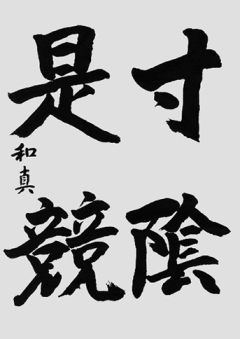 寸陰
是競
和真